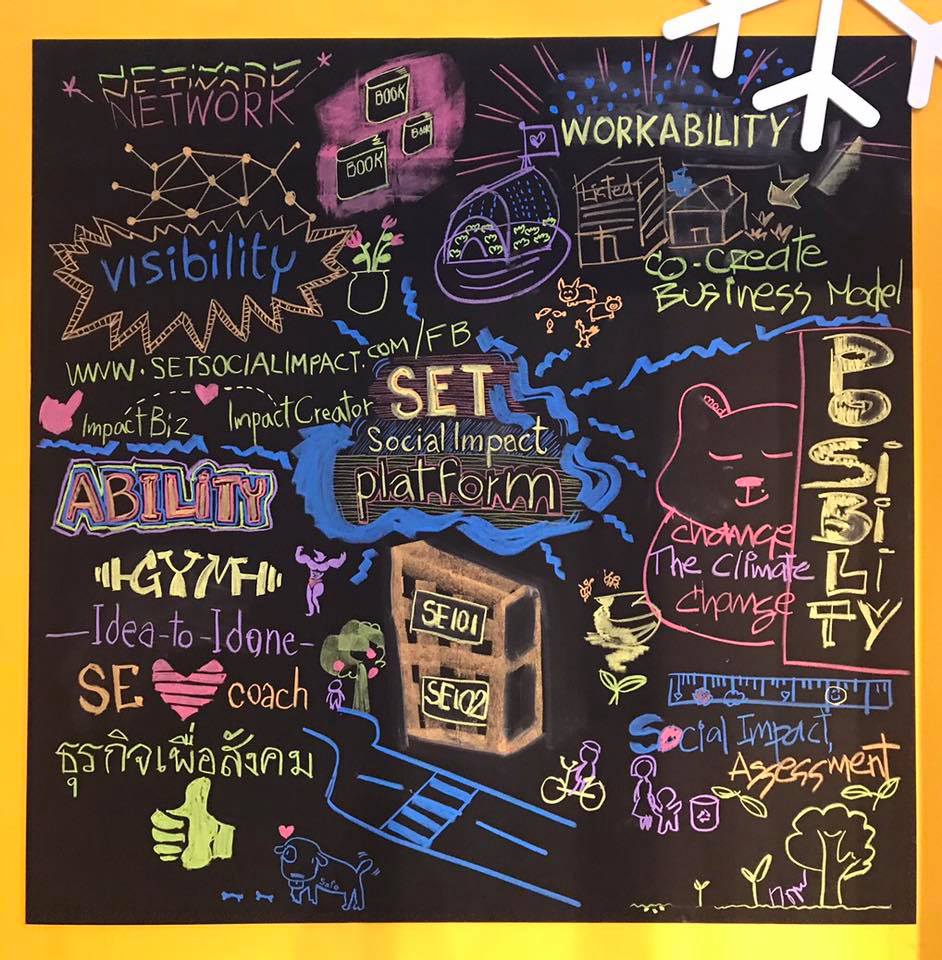 NETWORK
BOOK
BOOK
BOOK
WORKABILITY
Listed
visibility
co-create
Business Model
www.SETSOCIALIMPACT.com/FB
Impact Biz
Impact Creator
SET
Social Impact
platform
POSiBiLiTY
ABILiTY
change
The Climate
change
GYM
—Idea-to-Idone—
SE coach
SE101
SE102
ธุรกิจเพื่อสังคม
Social Impact
Assessment
now